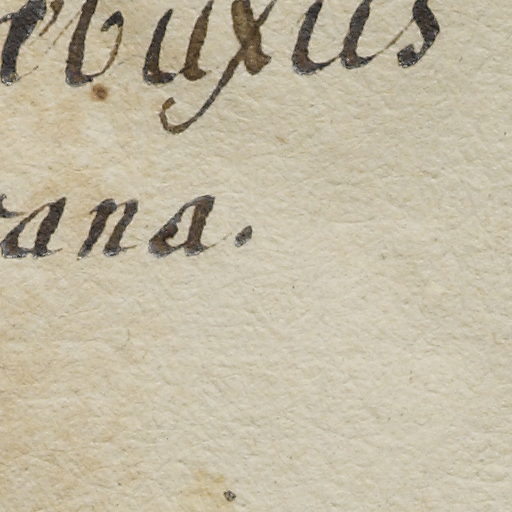 buxus
ana.